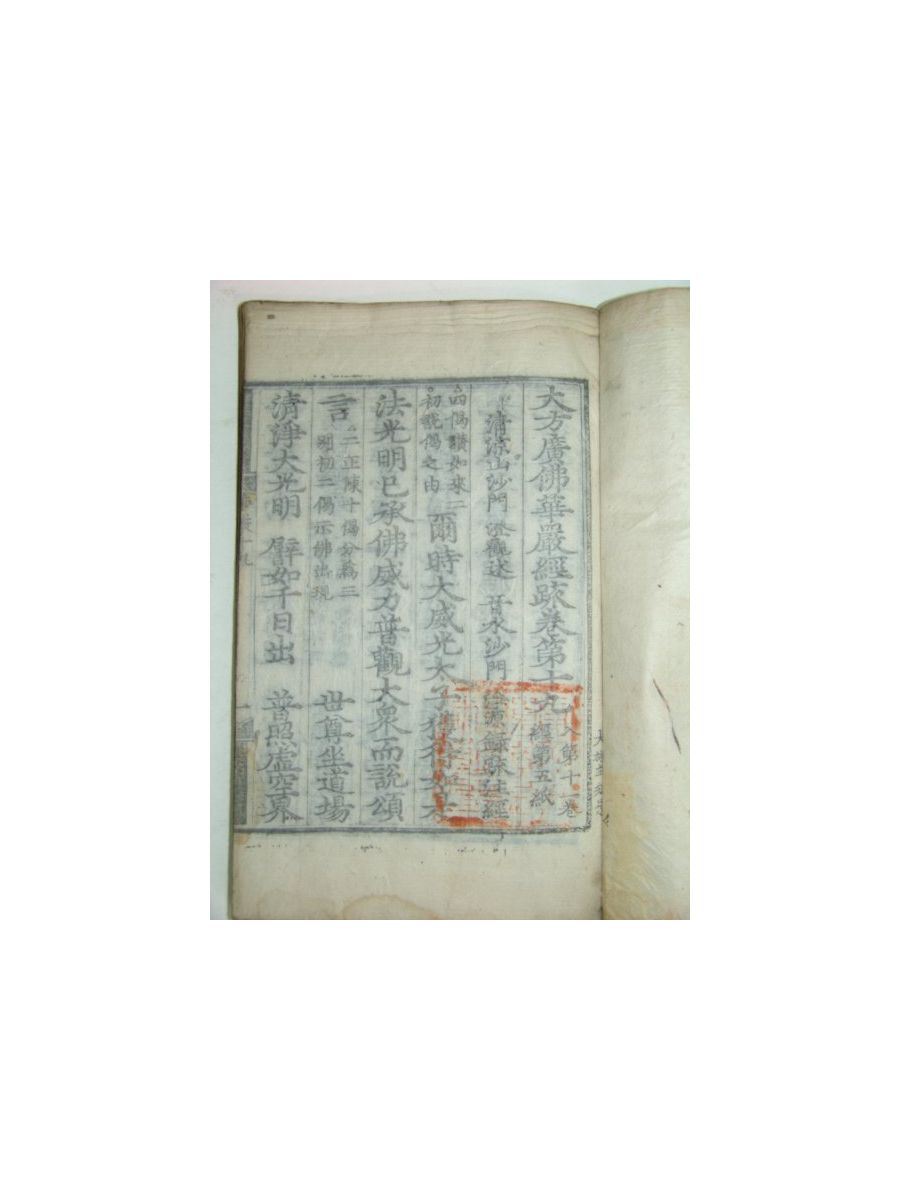 大方廣佛華嚴經䟽卷第十九 入第十一卷
經第五紙
清涼山沙門 澄觀述 晉水沙門 淨源錄䟽注經
四偈讃如來二
初說偈之由
爾時大威光太子獲得如是
法光明已承佛威力普觀大衆而說頌
言
二正陳十偈分爲三
別初二偈示佛出現
世尊坐道場
清淨大光明 譬如千日出 普照虛空界